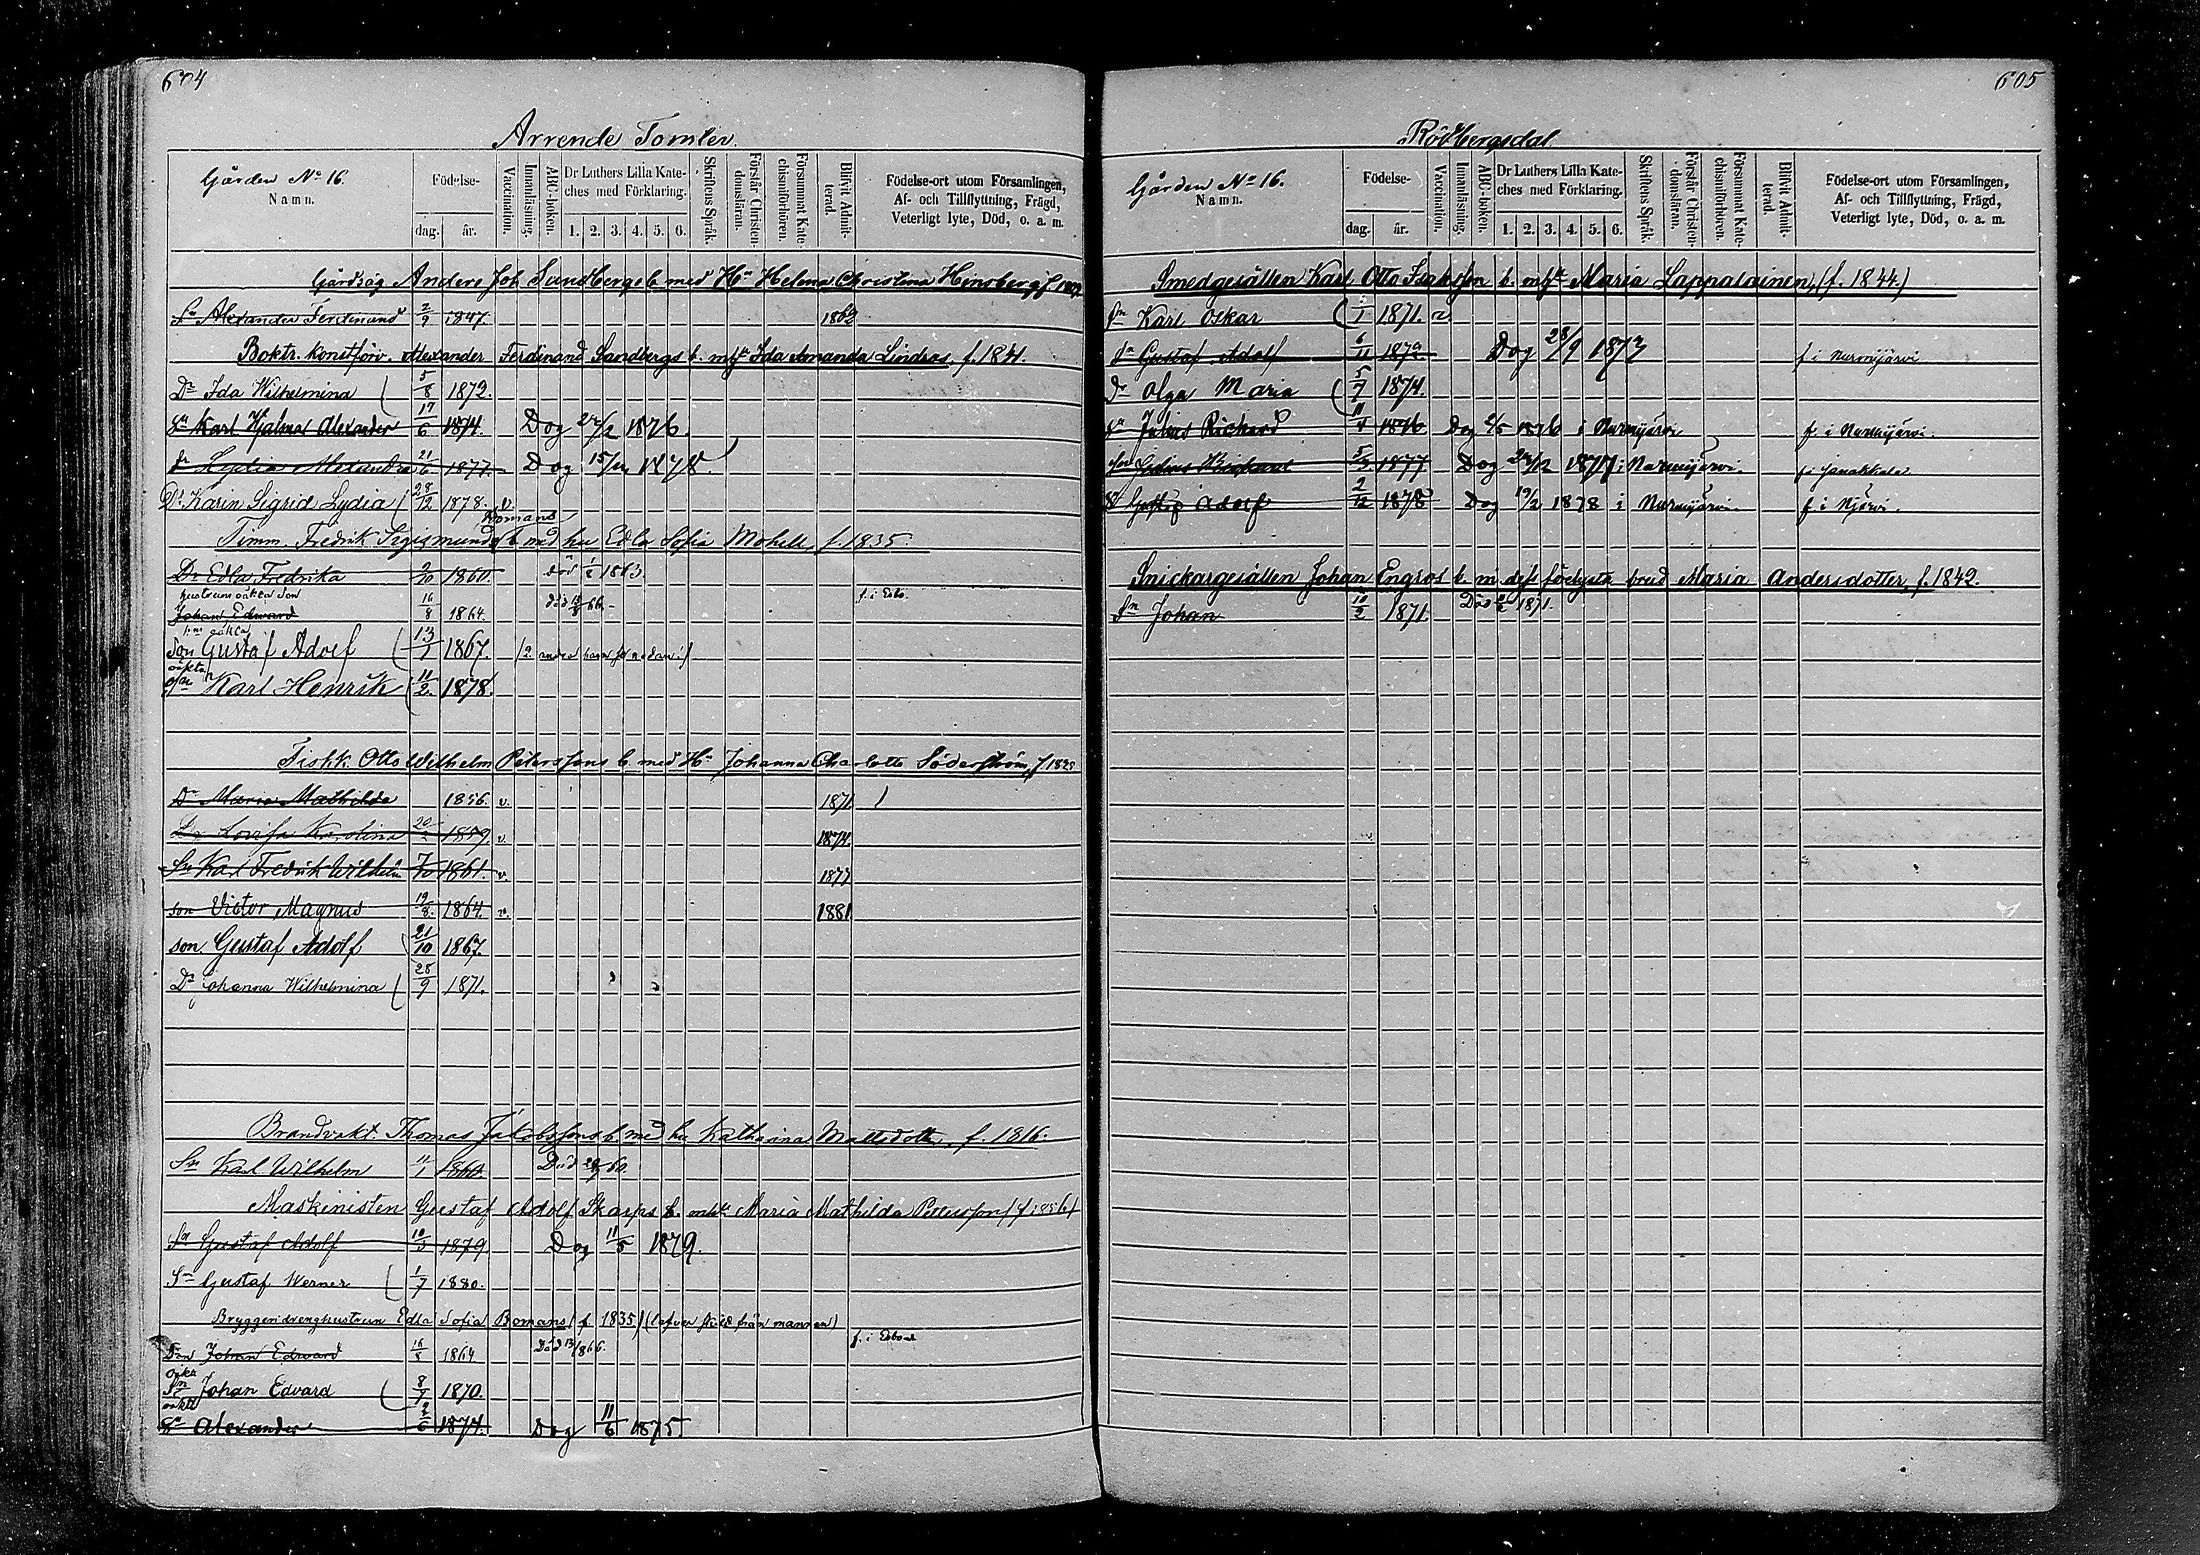 604
Arrende Tomter.
Gården No 16.
Namn.
Födelse-
dag. år.
Vaccination.
Innanläsning.
ABC-boken.
Dr Luthers Lilla Kate-
ches med Förklaring.
1. 2. 3. 4. 5. 6.
Skriftens Språk.
Förstår Christen-
domsläran.
Försummat Kate-
chismiförhören.
Blifvit Admit-
terad.
Födelse-ort utom Församlingen,
Af- och Tillflyttning, Frägd,
Veterligt lyte, Död, o. a. m.
Gårdsäg Anders Joh Sundbergs b. med Hu Helena Christina
Sn Alexander Ferdinand 2/9 1847.
Boktr. konstförv. Alexander Ferdinand Sandbergs b. m/h Ida Amanda Lindros, f. 1841.
Dr Ida Wilhelmina 5/8 1872.
Sn Karl Hjalmar Alexander 17/6 1874. Dog 1876.
Dr Lydia Alexandra 21/6 1877. Dog 1878.
Dr Karin Sigrid Lydia 28/12 1878. v.
Bomans
Timm. Fredrik Sigismunds b med hu Edla Sofia Mohell, f. 1835.
Dr Edla Fredrika 2/10 1860. död 1863
hustruns oäkta son
Johan Edward 16/8 1864. död 66. f. i Esbo.
hus oäkta
son Gustaf Adolf 13/1 1867.
oäkta
sn Karl Henrik 11/2 1878.
Fiskk. Otto Wilhelm Peterssons b. med Hu Johanna Charlotta Söderström,
Dr Maria Mathilda 1856. v. 1871
Dr Lovisa Karolina 20/2 1859. v. 1874.
Sn Karl Fredrik Wilhelm 7/10 1861. v. 1877
son Victor Magnus 19/8 1864. v. 1881
son Gustaf Adolf 21/10 1867.
Dr Johanna Wilhelmina 28/9 1871.
Brandvakt. Thomas Jakobssons b. med hu Katharina Mattsdotter, f. 1816.
Sn Karl Wilhelm 11/1 1860. Död 60.
Maskinisten Gustaf Adolf Skarps b. m/h Maria Mathilda Petersson (f. 1856)
Sn Gustaf Adolf 10/3 1879 Dog 11/5 1879.
Sn Gustaf Werner 1/7 1880.
Bryggeridrenghustrun Edla Sofia Bomans (f. 1835) (lefver skild från mannen)
Son Johan Edward 16/8 1864 Död 13/ 66. f. i Esbo
oäkta
Sn Johan Edvard 8/7 1870.
oäkta
Sn Alexander 2/6 1874. Dog 11/6 1875.
605
Rödbergsdal
Gården No 16.
Namn.
Födelse-
dag. år.
Vaccination.
Innanläsning.
ABC-boken.
Dr Luthers Lilla Kate-
ches med Förklaring.
1. 2. 3. 4. 5. 6.
Skriftens Språk.
Förstår Christen-
domsläran.
Försummat Kate-
chismiförhören.
Blifvit Admit-
terad.
Födelse-ort utom Församlingen,
Af- och Tillflyttning, Frägd,
Veterligt lyte, Död, o. a. m.
Smedgesällen Karl Otto Isaksson b. m/h Maria Lappalainen, (f. 1844)
Sn Karl Oskar 1/1 1871. v.
Sn Gustaf Adolf 6/11 1872 Dog 28/9 1873 f. i Nurmijärvi
Dr Olga Maria 5/7 1874.
Sn Julius Richard 11/4 1876 Dog 1876 i Nurmijärvi f. i Nurmijärvi.
Julius Richard 5/3 1877 Dog 1877 i Nurmijärvi. f. i Janakkala
Sn Gustaf Adolf 2/12 1878 Dog 19/2 1878 i Nurmijärvi. f. i Njärvi.
Snickargesällen Johan Engros b. m. dess förlysta brud Maria Andersdotter, f. 1842.
Sn Johan 10/2 1871. Död 1871.